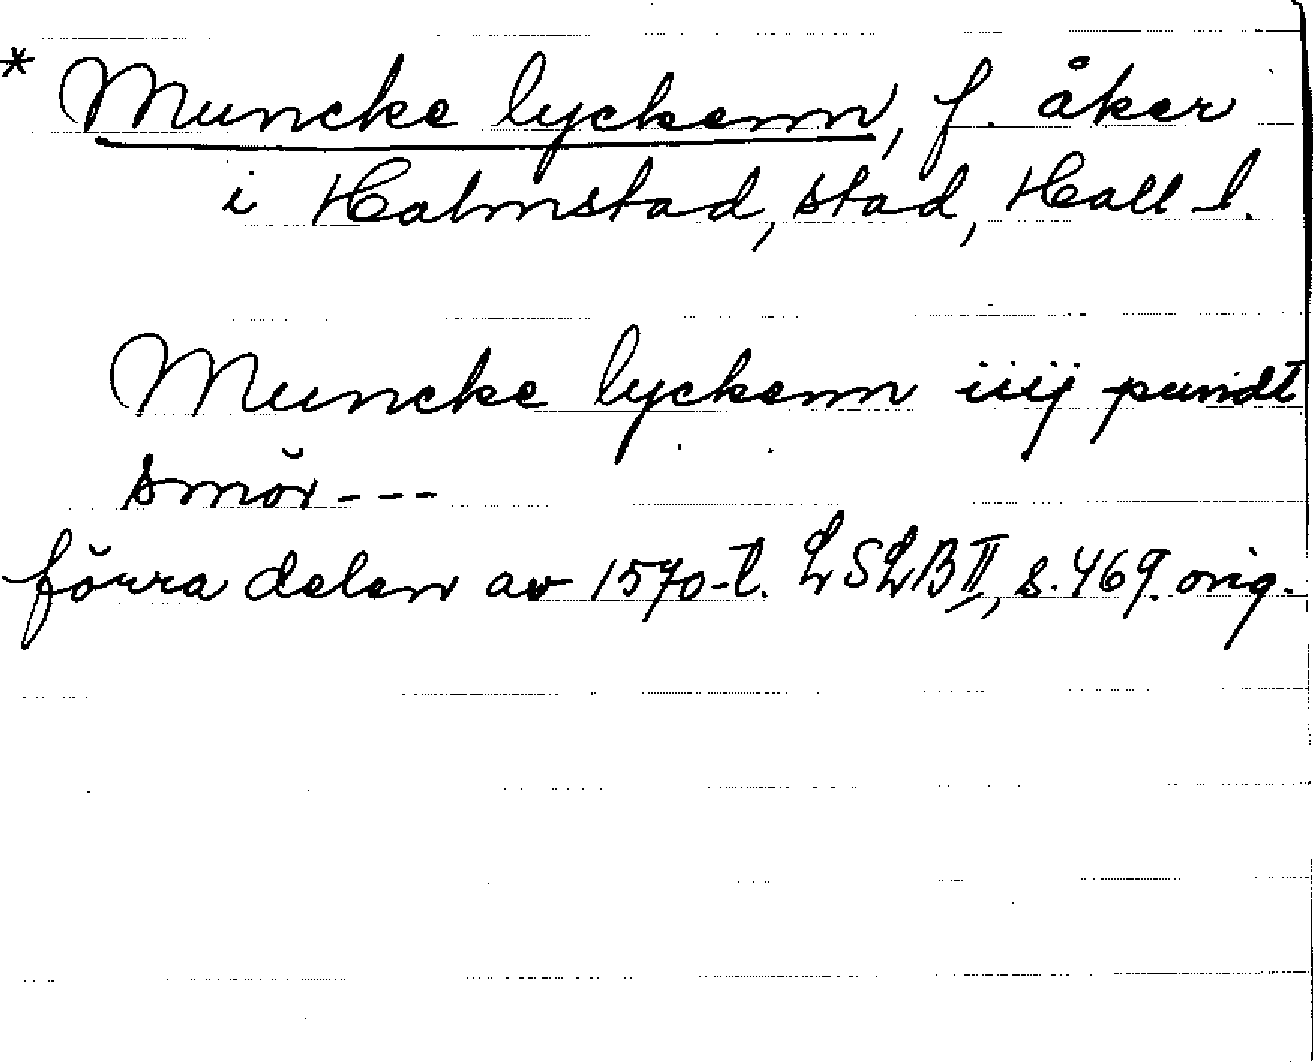 * Muncke lyckenn, f. åker
i Halmstad, stad, Hall l.
Muncke lyckenn iiij pundt
smör - - -
förra delen av 1570-t. LSLB II, s. 469. orig.